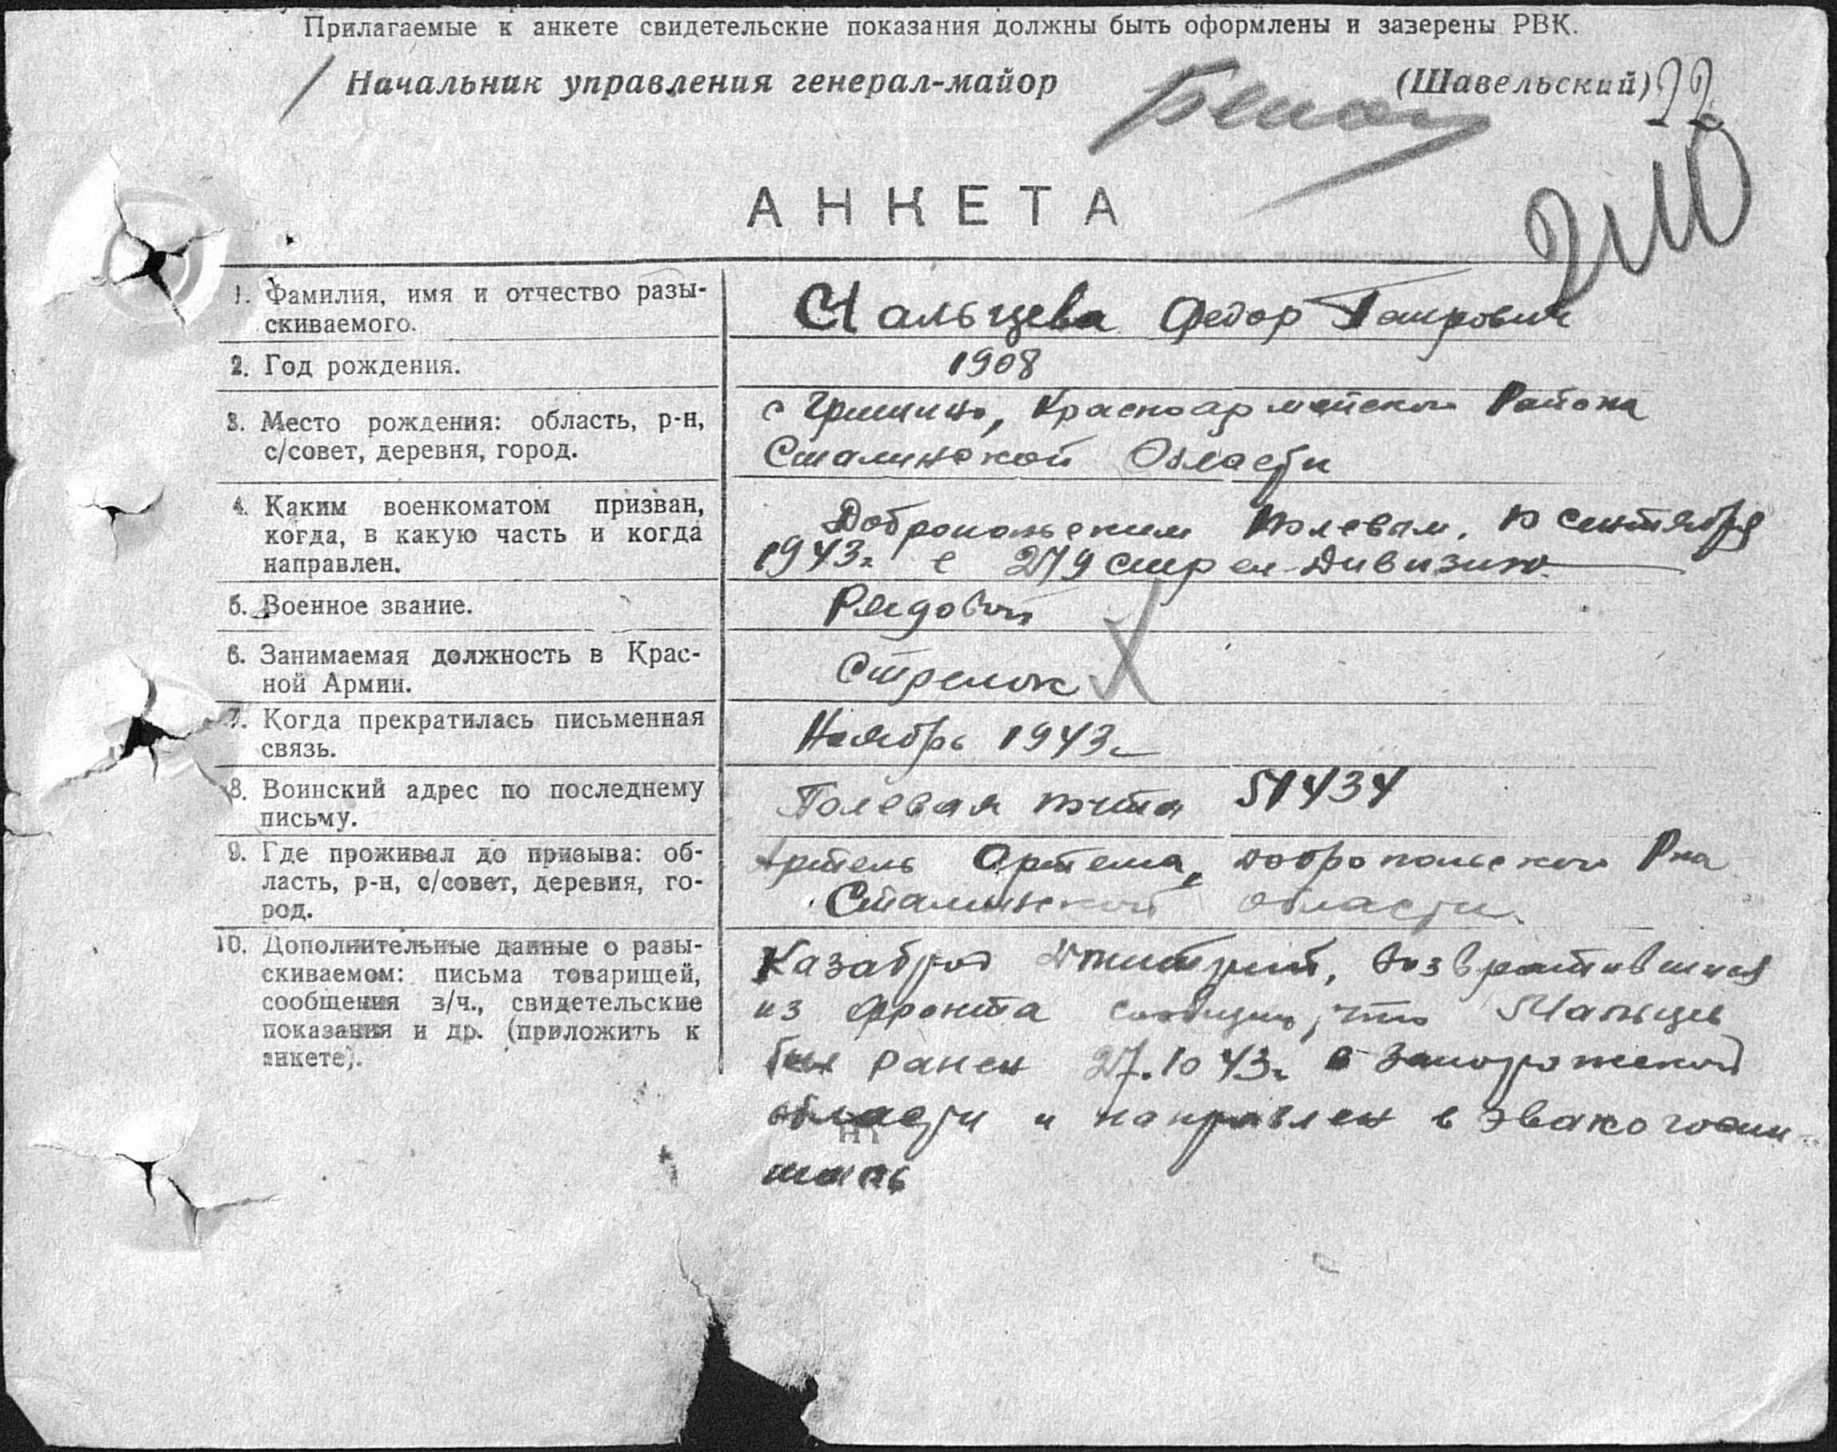 Прилагаемые к анкете свидетельские показания должны быть оформлены и заверены РВК.
Начальник управления генерал-майор (Шавельский) 22
210
АНКЕТА
1. Фамилия, имя и отчество разы-
скиваемого.
Мальцева Федор
2. Год рождения.
1908
3. Место рождения: область, р-н,
с/совет, деревня, город.
с Гришино, Красноармейского Района
Сталинской Области
4. Каким военкоматом призван,
когда, в какую часть и когда
направлен.
Добропольским Полевым, 10 сентября
1943г. в 279 стрел дивизию
5. Военное звание.
Рядовой
6. Занимаемая должность в Крас-
ной Армии.
Стрелок
7. Когда прекратилась письменная
связь.
Ноябрь 1943г
8. Воинский адрес по последнему
письму.
Полевая почта 51434
9. Где проживал до призыва: об-
ласть, р-н, с/совет, деревня, го-
род.
Артель Артема, Добропольского Р-на
Сталинской области.
10. Дополнительные данные о разы-
скиваемом: письма товарищей,
сообщения з/ч., свидетельские
показания и др. (приложить к
анкете).
Дмитрий, возвратившийся
из фронта сообщил, что Мальцев
был ранен 27.10 43г. в Запорожской
области и направлен в эвакогоспи-
таль